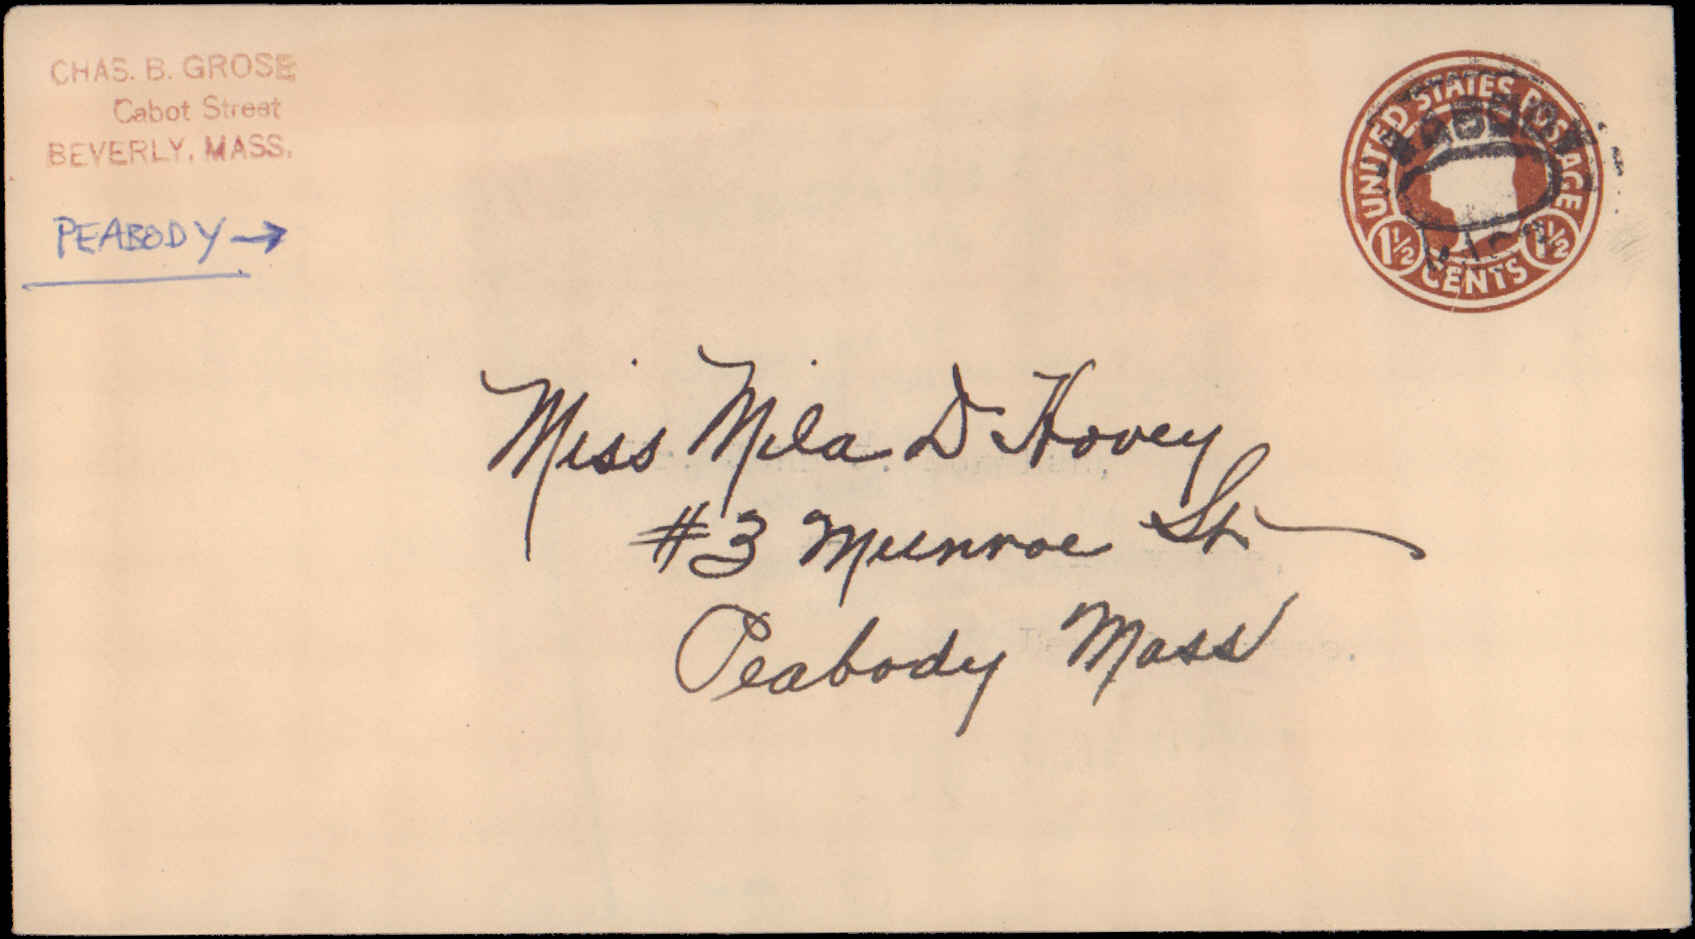 CHAS. B. GROSE
Cabot Street
BEVERLY, MASS.
PEABODY →
UNITED STATES POSTAGE
1½ 1½
CENTS
PEABODY
MASS
Miss Mila D Hovey
#3 Munroe St
Peabody Mass